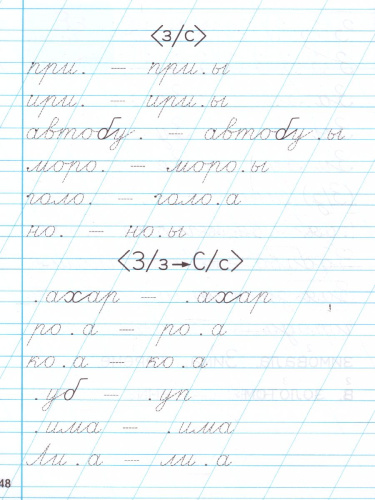 <з/с>
при. — при.ы
ири. — ири.ы
автобу. — автобу.ы
моро. — моро.ы
голо. — голо.а
но. — но.ы
<З/з→С/с>
.ахар — .ахар
ро.а — ро.а
ко.а — ко.а
.уб — .уп
.има — .има
Ли.а — ли.а
48